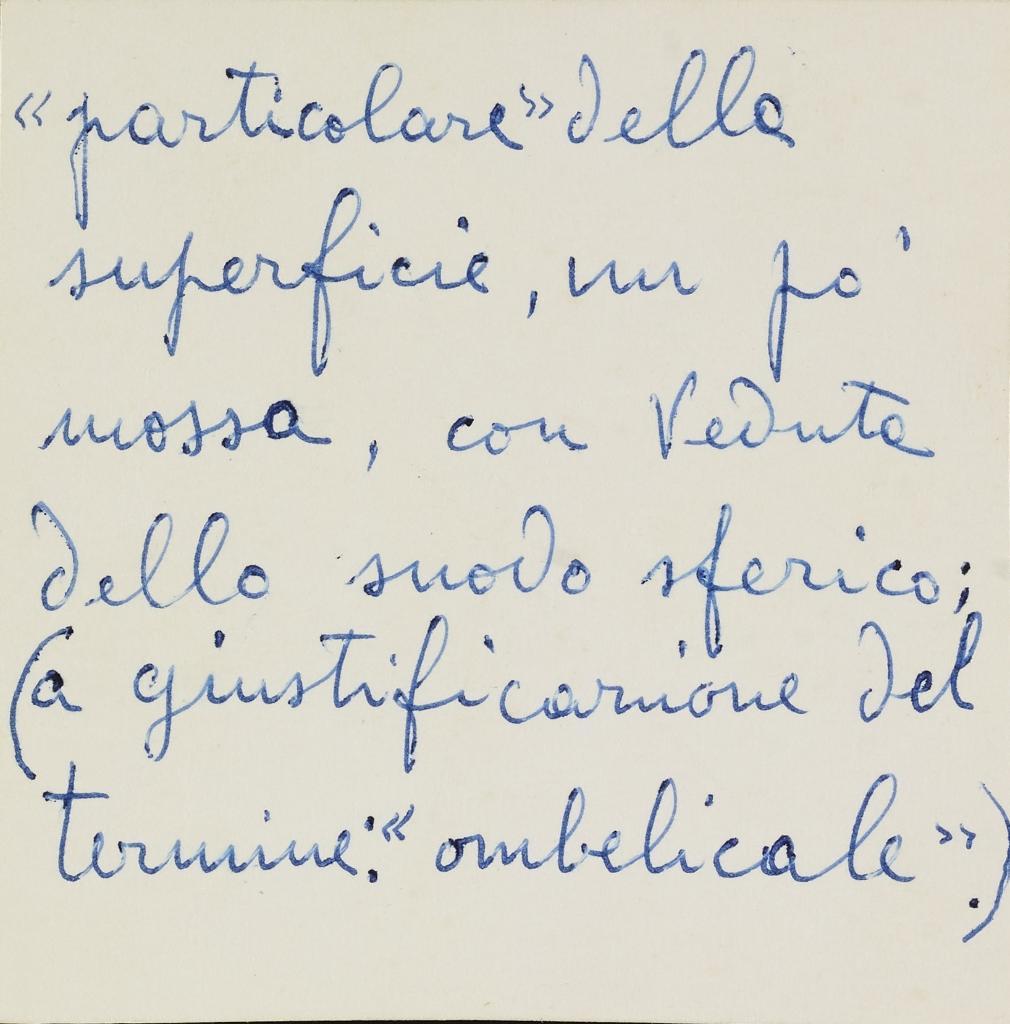 «particolare» della
superficie, un po'
mossa, con veduta
dello snodo sferico;
(a giustificazione del
termine: «ombelicale».)